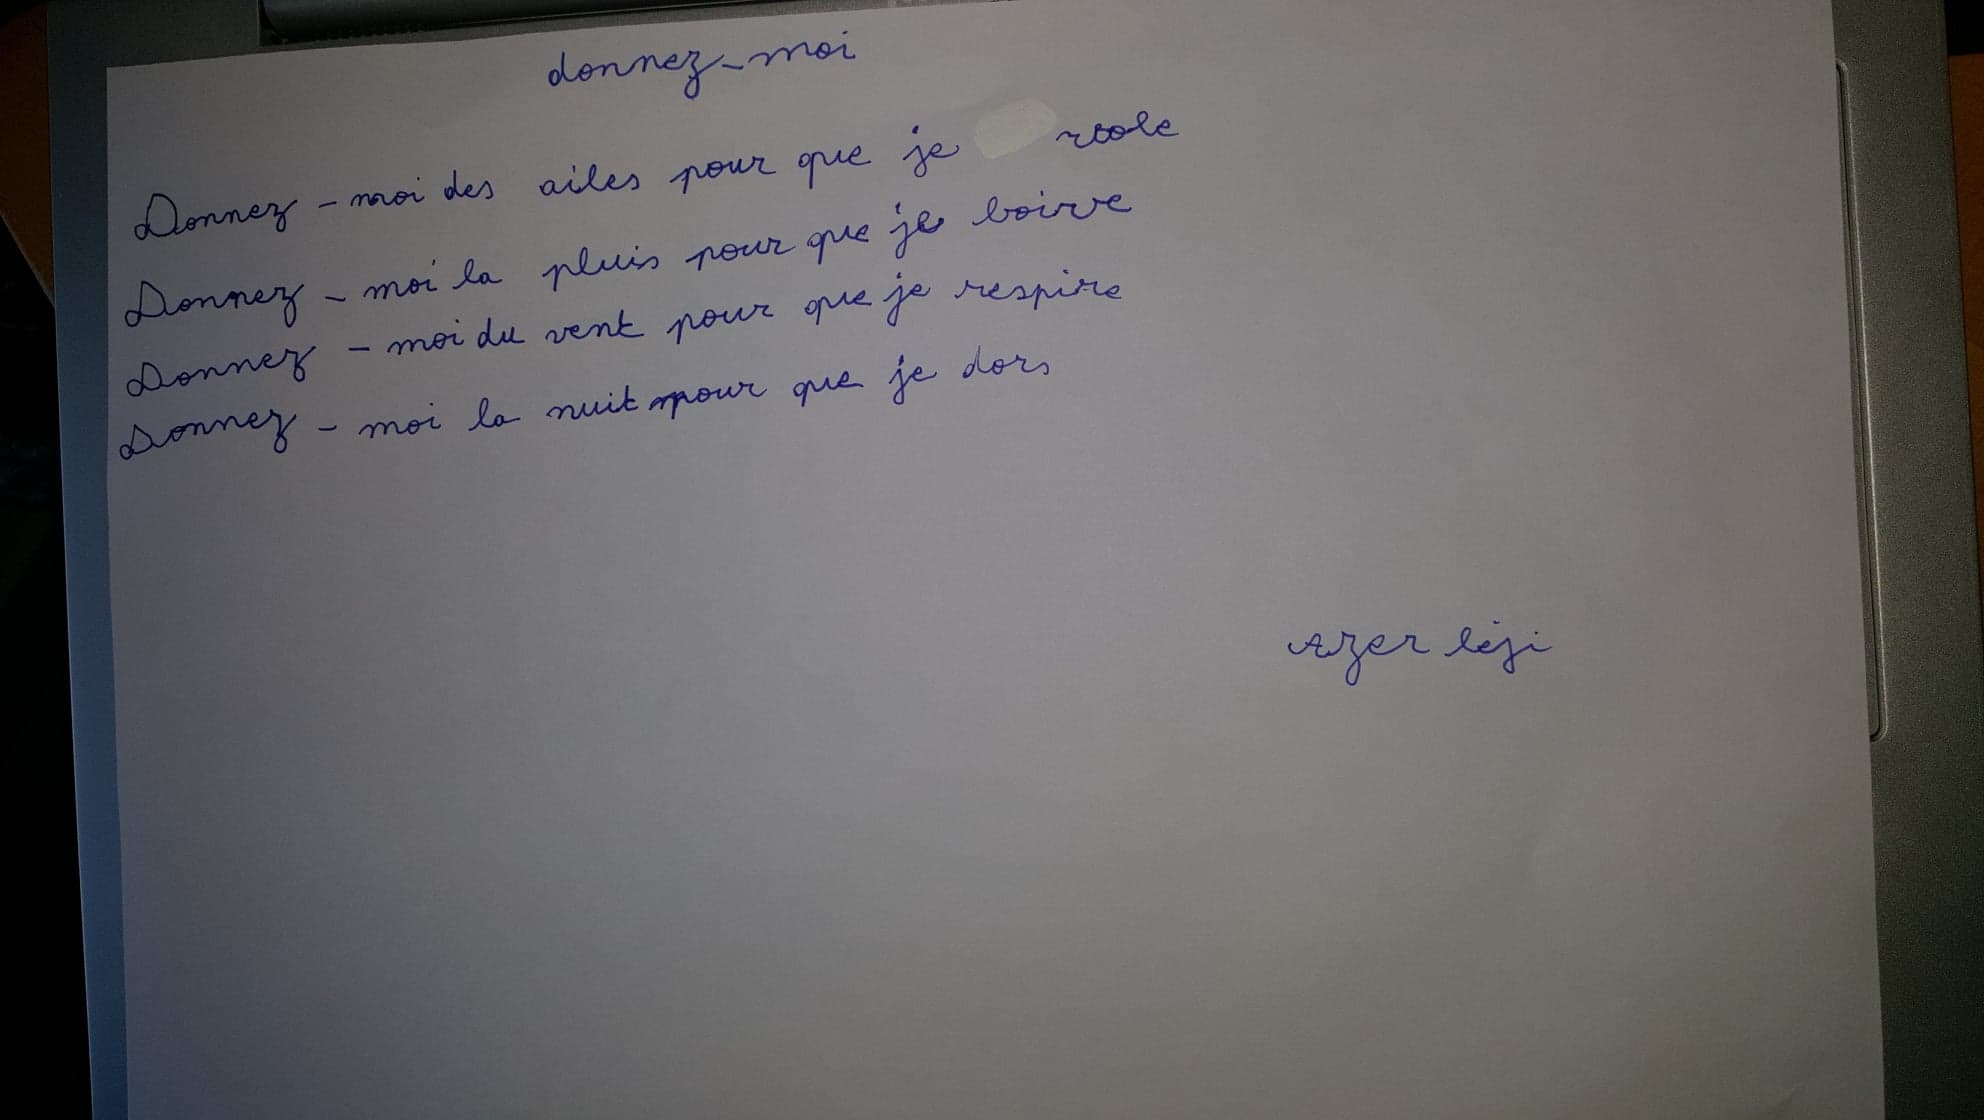 donnez-moi
Donnez-moi des ailes pour que je vole
Donnez-moi la pluis pour que je boive
Donnez-moi du vent pour que je respire
Donnez-moi la nuit pour que je dors
Azer léji